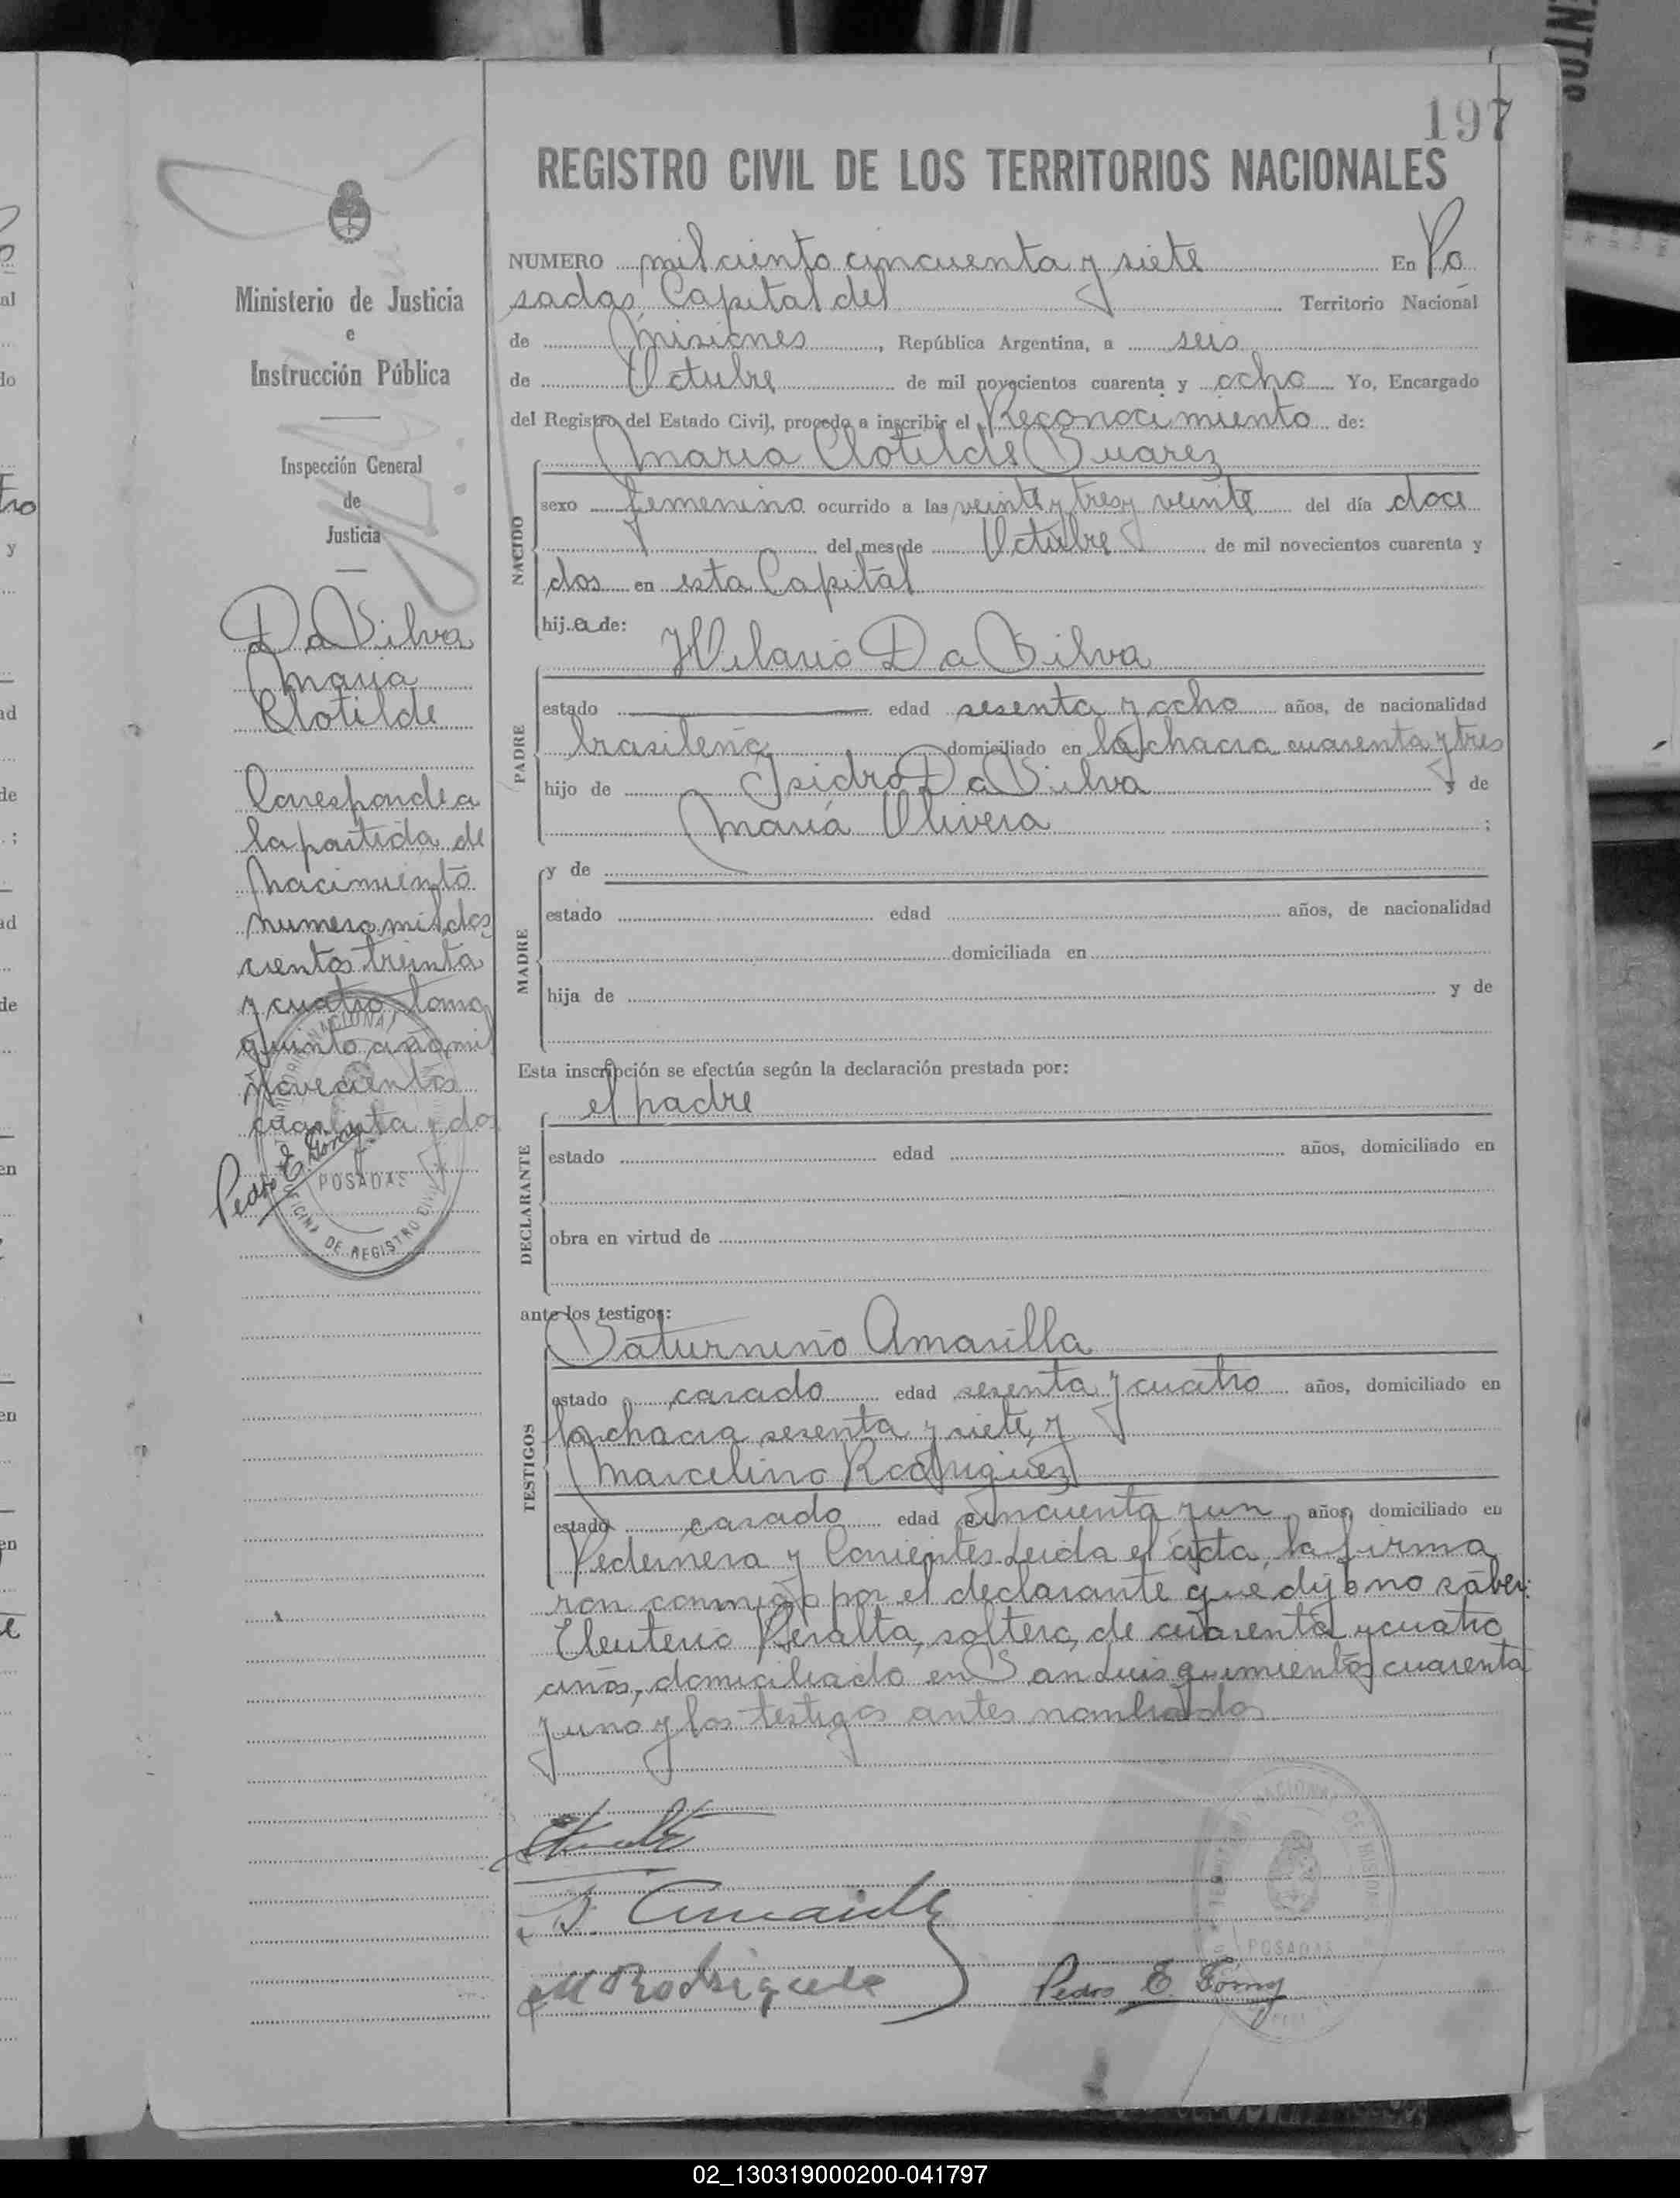 197
REGISTRO CIVIL DE LOS TERRITORIOS NACIONALES
Ministerio de Justicia
e
Instrucción Pública
Inspección General
de
Justicia
Da Silva
Maria
Clotilde
Corresponde a
la partida de
Nacimiento
numero mil dos
cientos treinta
y cuatro tomo
quinto año mil
novecientos
cuarenta y dos
Pedro E. Gomez
POSADAS
OFICINA DE REGISTRO CIVIL
NUMERO mil ciento cincuenta y siete En Po
sadas, Capital del Territorio Nacional
de Misiones, República Argentina, a seis
de Octubre de mil novecientos cuarenta y ocho Yo, Encargado
del Registro del Estado Civil, procedo a inscribir el Reconocimiento de:
Maria Clotilde Suarez
NACIDO
sexo femenino ocurrido a las veinte y tres y veinte del día doce
del mes de Octubre de mil novecientos cuarenta y
dos en esta Capital
hij a de:
Hilario Da Silva
PADRE
estado edad sesenta y ocho años, de nacionalidad
brasileña domiciliado en la chacra cuarenta y tres
hijo de Isidro Da Silva y de
María Olivera ;
MADRE
y de
estado edad años, de nacionalidad
domiciliada en
hija de y de
Esta inscripción se efectúa según la declaración prestada por:
el padre
DECLARANTE
estado edad años, domiciliado en
obra en virtud de
ante los testigos:
Saturnino Amarilla
TESTIGOS
estado casado edad sesenta y cuatro años, domiciliado en
la chacra sesenta y siete, y
Marcelino Rodriguez
estado casado edad cincuenta y un años, domiciliado en
Pedernera y Corrientes. Leida el acta, la firma
ron conmigo por el declarante que dijo no saber:
Eleuterio Peralta, soltero, de cuarenta y cuatro
años, domiciliado en San Luis quinientos cuarenta
y uno y los testigos antes nombrados
S. Amarilla
M Rodriguez
Pedro E. Gomez
POSADAS
02_130319000200-041797